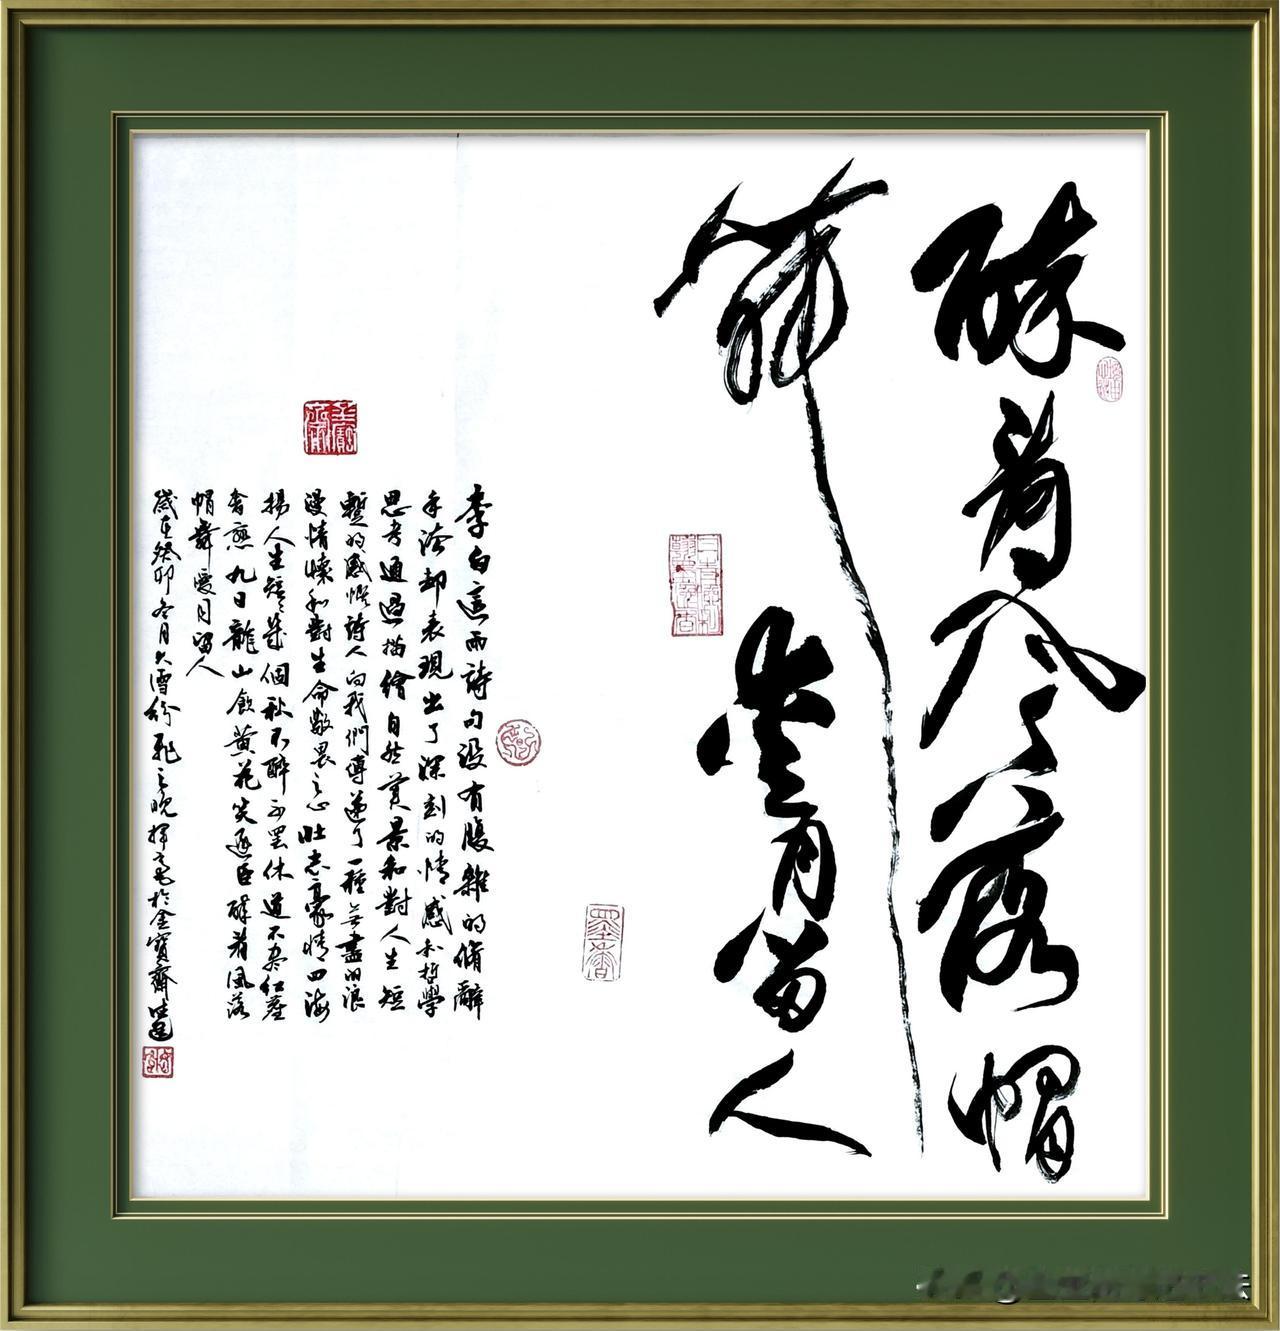 醉看风落帽
舞爱月留人
李白這两詩句没有腹雜的脩辭
手法却表現出了深刻的情感和哲學
思考通過描繪自然美景和對人生短
暫的感慨詩人向我們傳遞了一種無盡的浪
漫情懷和對生命敬畏之心壯志豪情四海
揚人生短幾個秋不醉不罢休道不尽红塵
奢戀九日龍山飲黄花笑逐臣醉看風落
帽舞愛月留人
歲在癸卯冬月大雪紛飛之晚揮毫於金寶齋
墨香